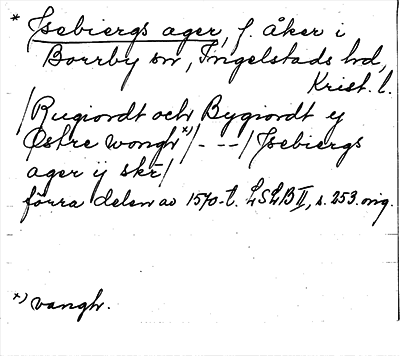 * Isebiergs ager, f. åker i
Borrby sn, Ingelstads hd,
Krist. l.
/Rugiordt och Bygiordt ÿ
Østre wongh*)/ - - -/ Isebiergs
ager ij skr̄/
förra delen av 1570-t. LSLB II, s. 253. orig.
*) vangh.